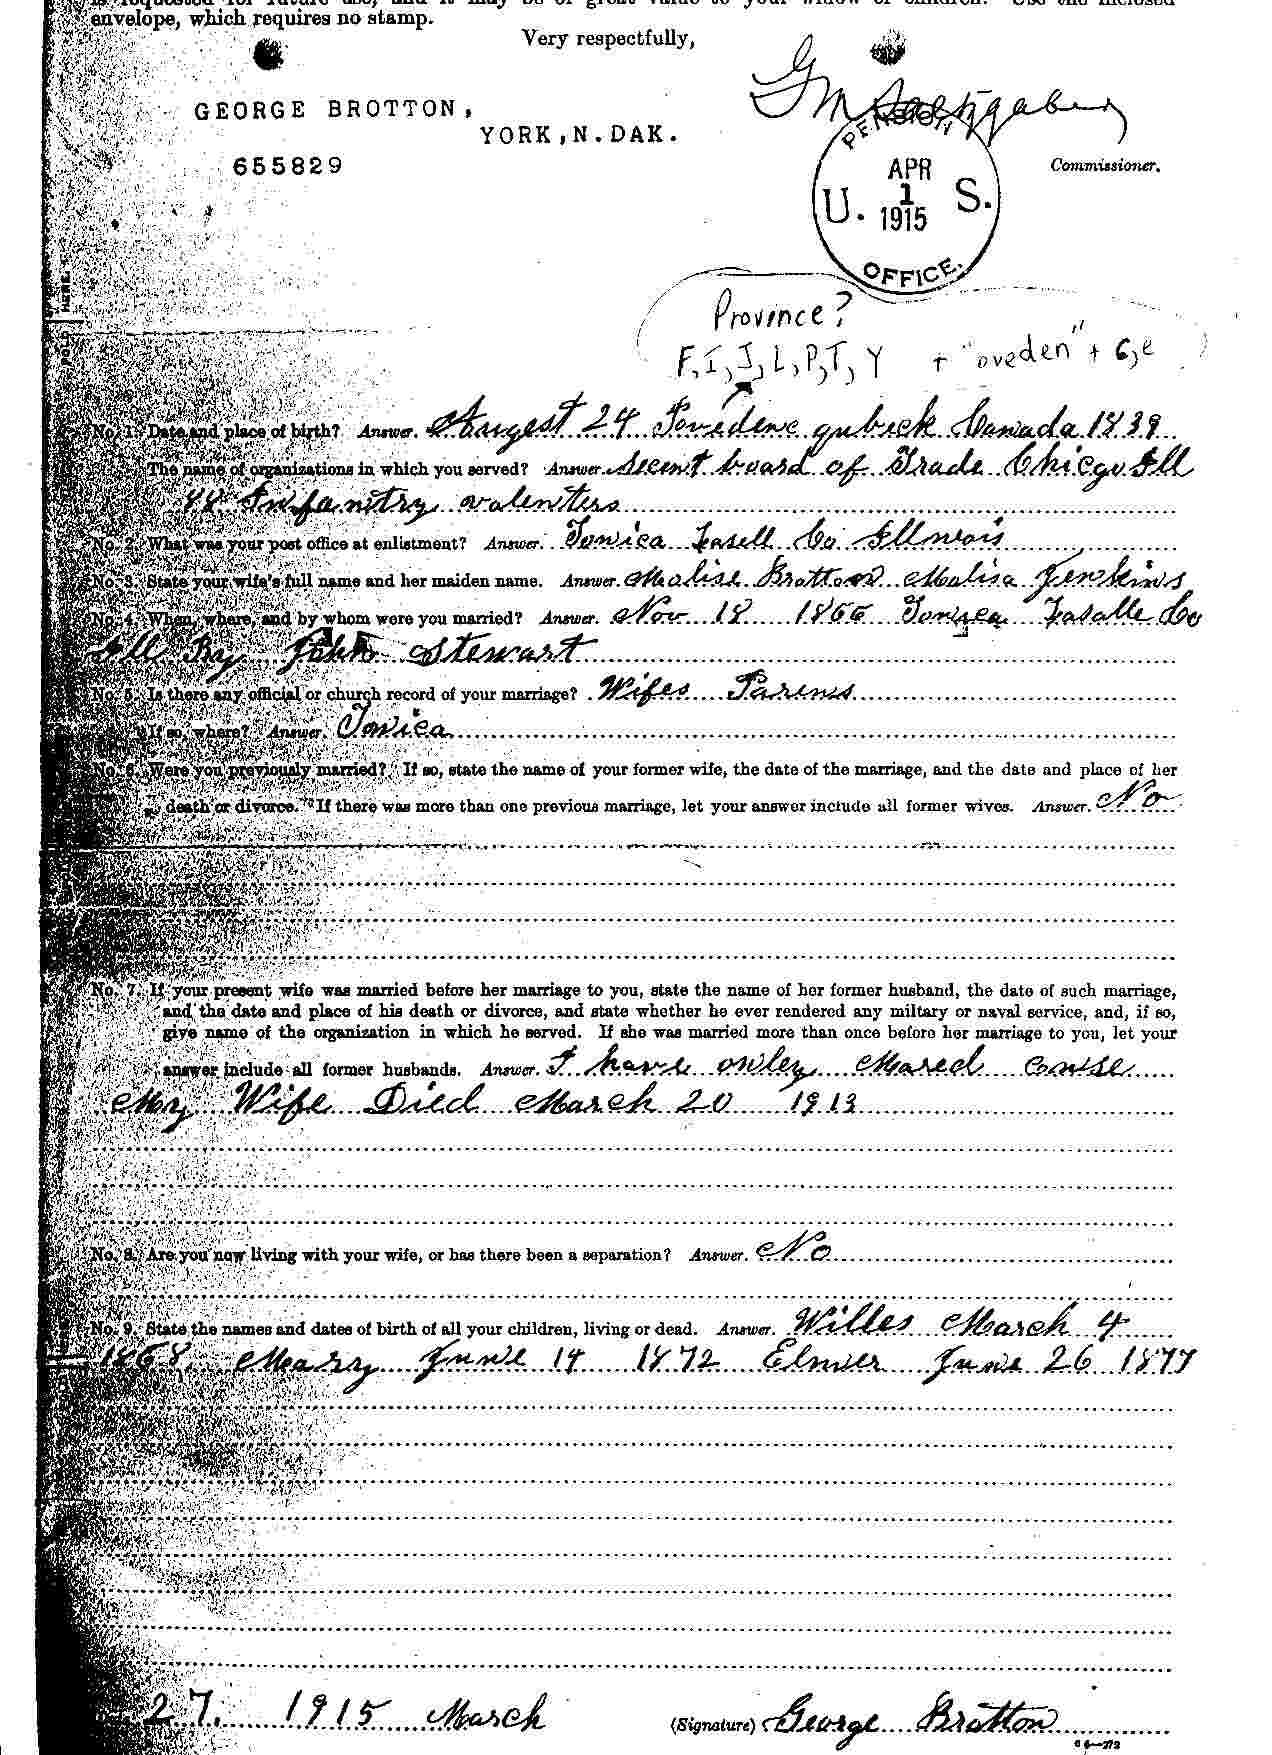 is requested for future use, and it may be of great value to your widow or children. Use the inclosed
envelope, which requires no stamp.
Very respectfully,
GEORGE BROTTON,
YORK, N. DAK.
655829
Commissioner.
PENSION
APR
U. 1 S.
1915
OFFICE.
Province?
F, I, J, L, P, T, Y + "oveden" + C, e
No. 1. Date and place of birth? Answer. Augest 24 Povedenc qubick Canada 1839
The name of organizations in which you served? Answer. Secent board of Trade Chicgo Ill
88 Infanitry valenters
No. 2. What was your post office at enlistment? Answer. Tonica Lasell Co Illinois
No. 3. State your wife's full name and her maiden name. Answer. Malise Brotton Malisa Jenskins
No. 4. When, where, and by whom were you married? Answer. Nov 18 1866 Tonica Lasalle Co
Ill By John Stewart
No. 5. Is there any official or church record of your marriage? Wifes Parens
If so, where? Answer. Tonica
No. 6. Were you previously married? If so, state the name of your former wife, the date of the marriage, and the date and place of her
death or divorce. If there was more than one previous marriage, let your answer include all former wives. Answer. No
No. 7. If your present wife was married before her marriage to you, state the name of her former husband, the date of such marriage,
and the date and place of his death or divorce, and state whether he ever rendered any miltary or naval service, and, if so,
give name of the organization in which he served. If she was married more than once before her marriage to you, let your
answer include all former husbands. Answer. I have onley Mared Conse
My Wife Died March 20 1913
No. 8. Are you now living with your wife, or has there been a separation? Answer. No
No. 9. State the names and dates of birth of all your children, living or dead. Answer. Willes March 4
1868 Mary June 14 1872 Elmer June 26 1877
27. 1915 March (Signature) George Brotton